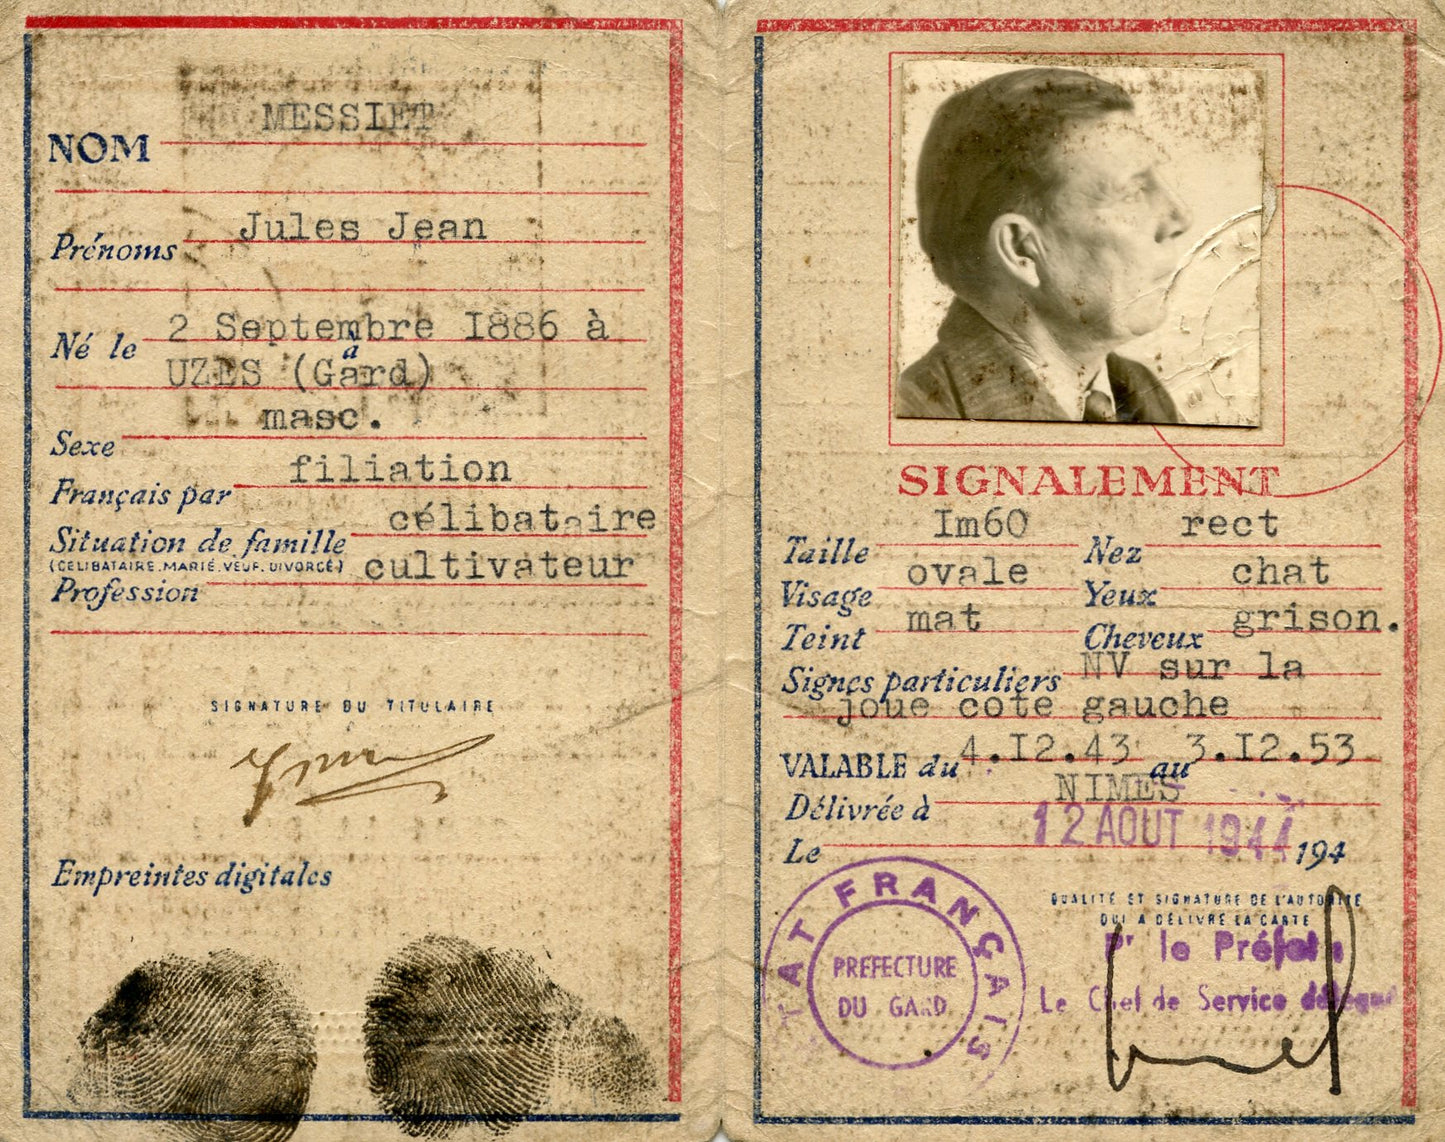 NOM MESSIET
Prénoms Jules Jean
Né le 2 Septembre 1886 à
à
UZES (Gard)
Sexe masc.
Français par filiation
Situation de famille célibataire
(CÉLIBATAIRE, MARIÉ, VEUF, DIVORCÉ)
Profession cultivateur
SIGNATURE DU TITULAIRE
Empreintes digitales
SIGNALEMENT
Taille Im60 Nez rect
Visage ovale Yeux chat
Teint mat Cheveux grison.
Signes particuliers NV sur la
joue cote gauche
VALABLE du 4.I2.43 au 3.I2.53
Délivrée à NIMES
Le 12 AOUT 1944 194
QUALITÉ ET SIGNATURE DE L'AUTORITÉ
QUI A DÉLIVRÉ LA CARTE
Pr le Préfet
Le Chef de Service délégué
ETAT FRANÇAIS
PREFECTURE
DU GARD